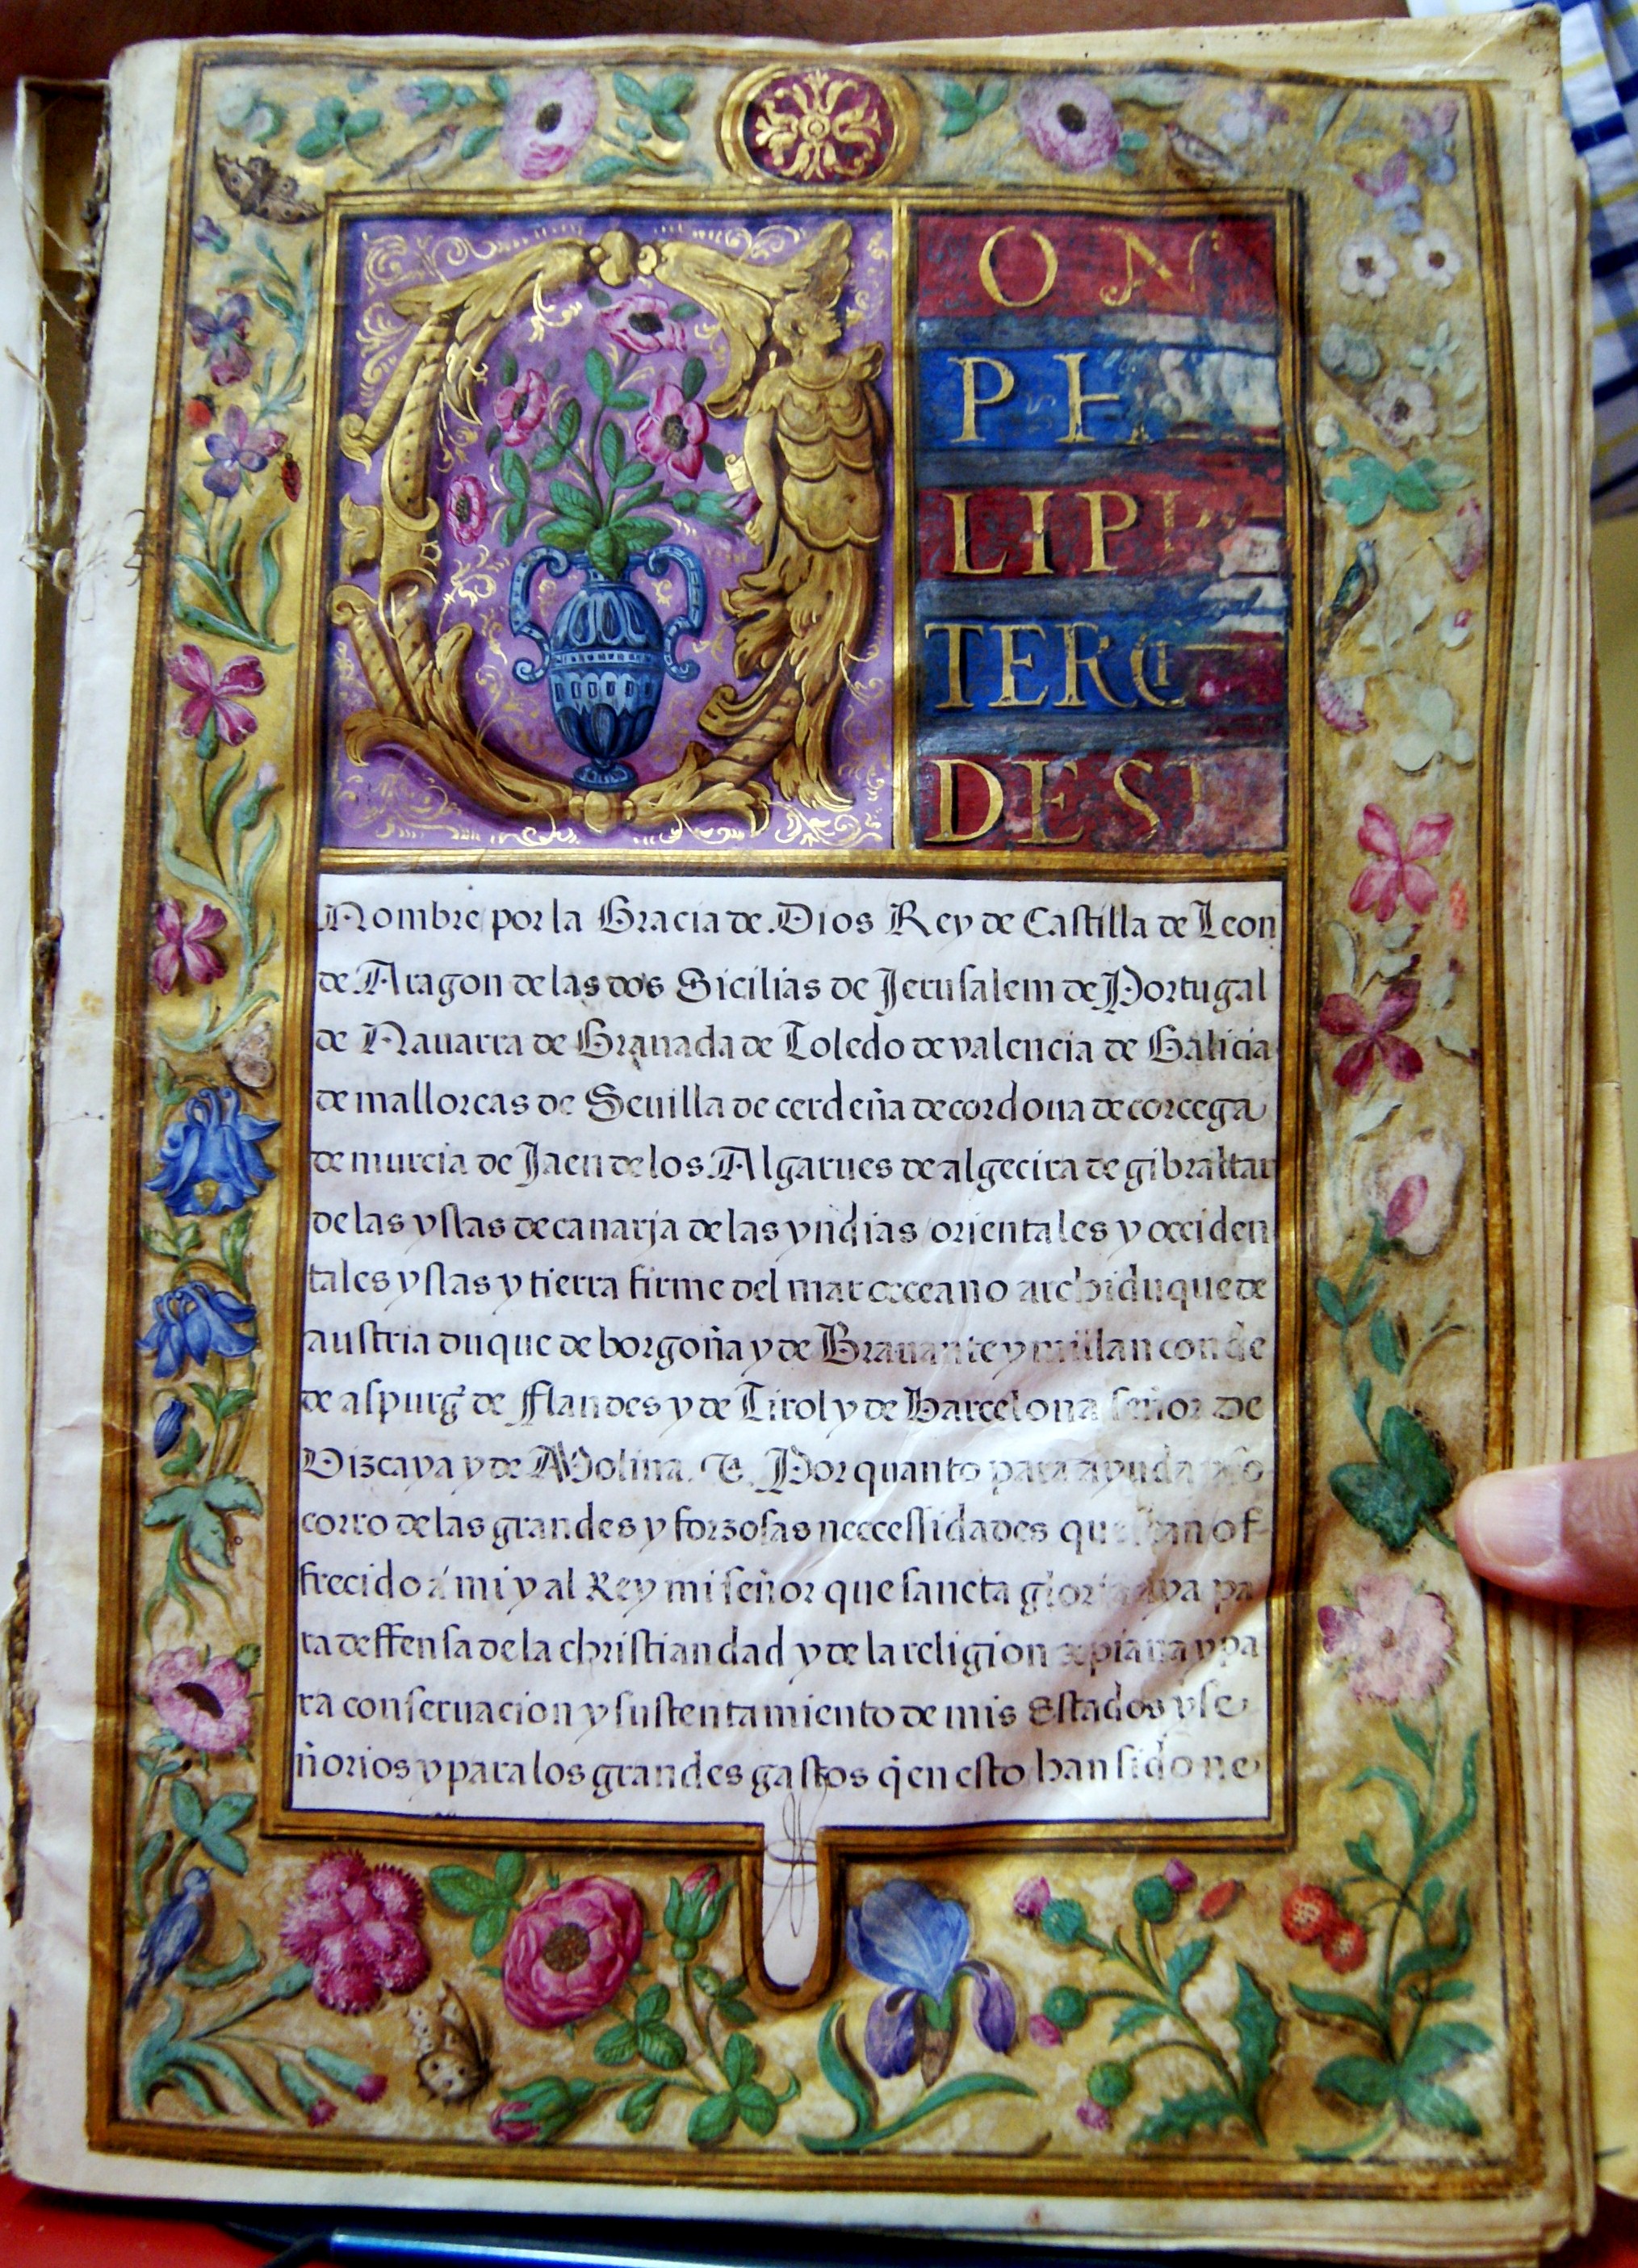 DON
PH
LIPP
TERCI
DES
Nombre por la Gracia de Dios Rey de Castilla de Leon
de Aragon de las dos Sicilias de Jerusalem de Portugal
de Nauarra de Granada de Toledo de valencia de Galicia
de mallorcas de Seuilla de cerdeña de cordoua de corcega
de murcia de Jaen de los Algarues de algecira de gibraltar
de las yslas de canaria de las yndias orientales y occiden
tales yslas y tierra firme del mar occeano archiduque de
austria duque de borgoña y de Brauante y millan conde
de aspurg de flandes y de Tirol y de Barcelona señor de
Vizcaya y de Molina. &. Por quanto para ayuda y so
corro de las grandes y forzosas neccessidades que han of
frecido á mi y al Rey mi señor que sancta gloria aya pa
ra deffensa de la christiandad y de la religion xpiana y pa
ra conseruacion y sustentamiento de mis Estados y se
ñorios y para los grandes gastos q̃ en esto han sido ne